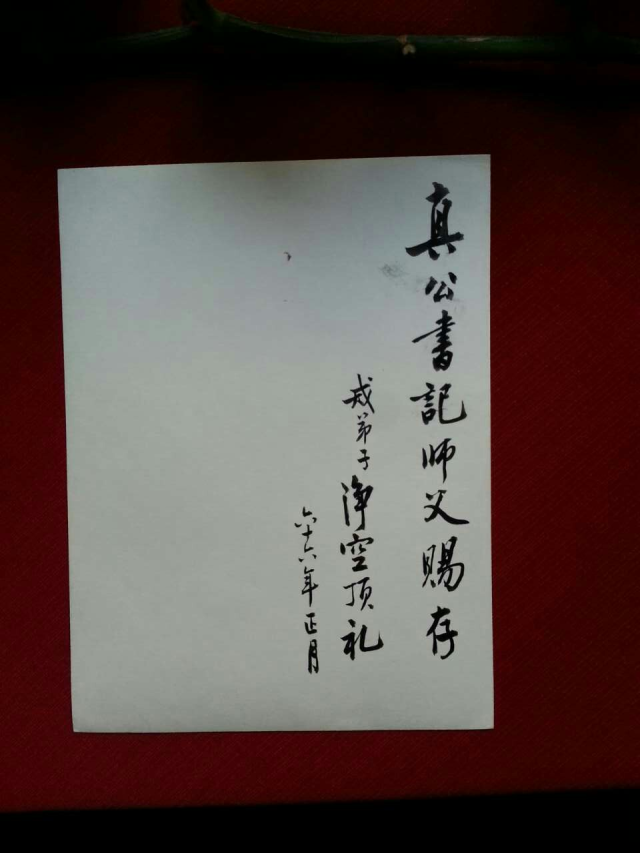 真公書記师父赐存
戒弟子淨空顶礼
六十六年正月